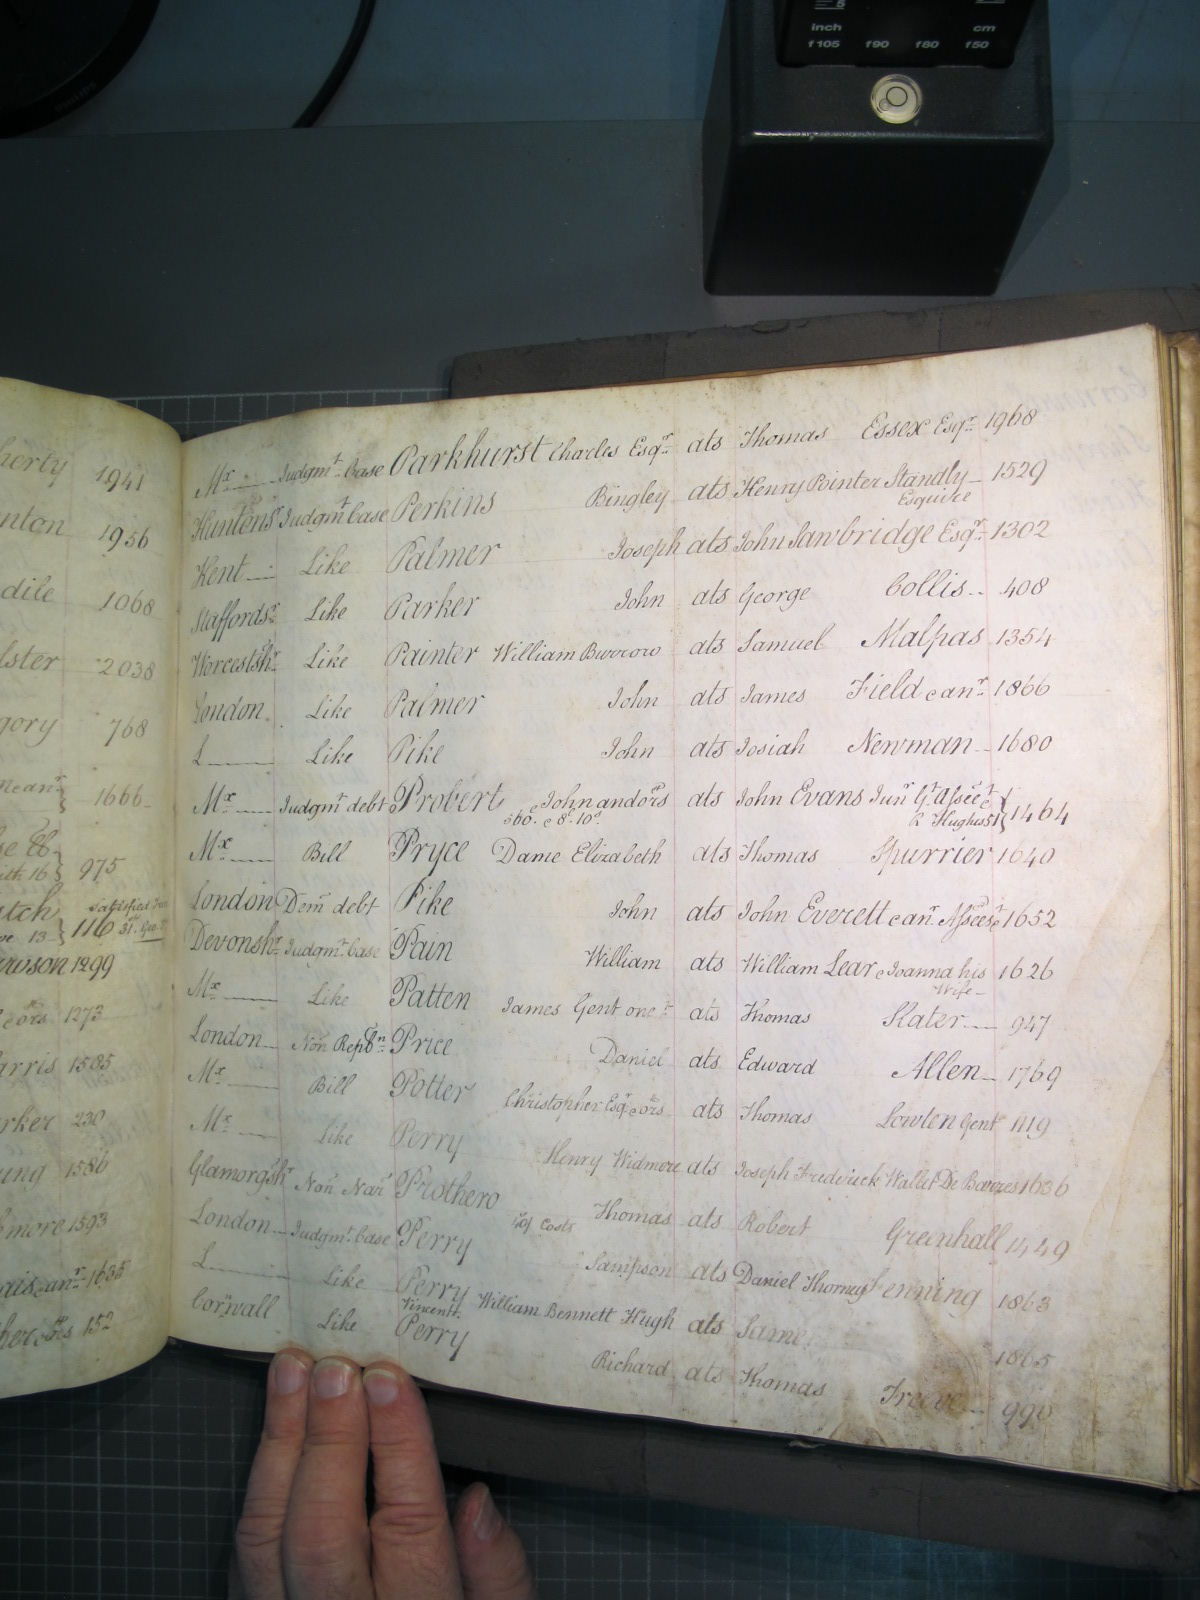 5
inch cm
f105 f90 f80 f50
PHILIPS
herty 1941
nton 1956
dile 1068
lster 2038
gory 768
1666
975
116
1299
1273
arris 1585
rker 230
ung 1586
more 1593
1635
152
Mx Judgmt. Case Parkhurst Charles Esqr. ats Thomas Essex Esqr. 1968
Huntonsr. Judgmt Case Perkins Bingley ats Henry Pointer Standly 1529
Esquire
Kent Like Palmer Joseph ats John Sawbridge Esqr. 1302
Staffordsr. Like Parker John ats George Collis 408
Worcestshr. Like Painter William Burrow ats Samuel Malpas 1354
London Like Palmer John ats James Field e anr. 1866
L Like Pike John ats Josiah Newman 1680
Mx Judgmt debt Probert John and ors ats John Evans Junr Gt. Assee 1464
560. e 8s. 10d. & Hughes 51
Mx Bill Pryce Dame Elizabeth ats Thomas Spurrier 1640
London Dem debt Pike John ats John Everett e anr. Assees 1652
Devonshr. Judgmt. Case Pain William ats William Lear e Joanna his 1626
Wife
Mx Like Patten James Gent one ats Thomas Slater 947
London Non Repbn. Price Daniel ats Edward Allen 1769
Mx Bill Potter Christopher Esqr e ors ats Thomas Lowten Gent 1119
Mx Like Perry Henry Widmore ats Joseph Frederick Wallet De Barres 1636
Glamorgshr Non Nar Prothero Thomas ats Robert Greenhall 1449
of Costs
London Judgmt. Case Perry Sampson ats Daniel Thorney Fenning 1863
L Like Perry William Bennett Hugh ats Same 1865
Vincent
Cornwall Like Perry Richard ats Thomas 990